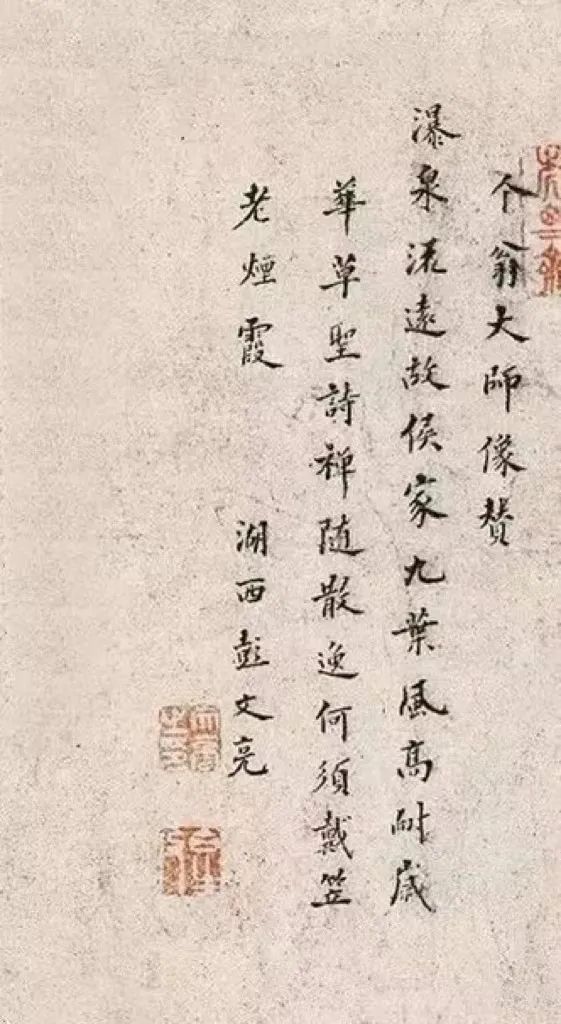 个翁大師像贊
瀑泉流遠故侯家九葉風高耐歲
華草聖詩禅随散逸何須戴笠
老煙霞
湖西彭文亮